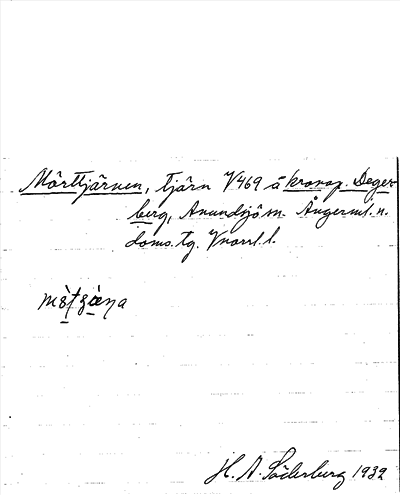 Mörttjärnen, tjärn V469 å kronop. Deger-
berg, Anundsjö sn. Ångerml. n.
doms. tg. Vnorrl. l.
H. A. Söderberg 1932